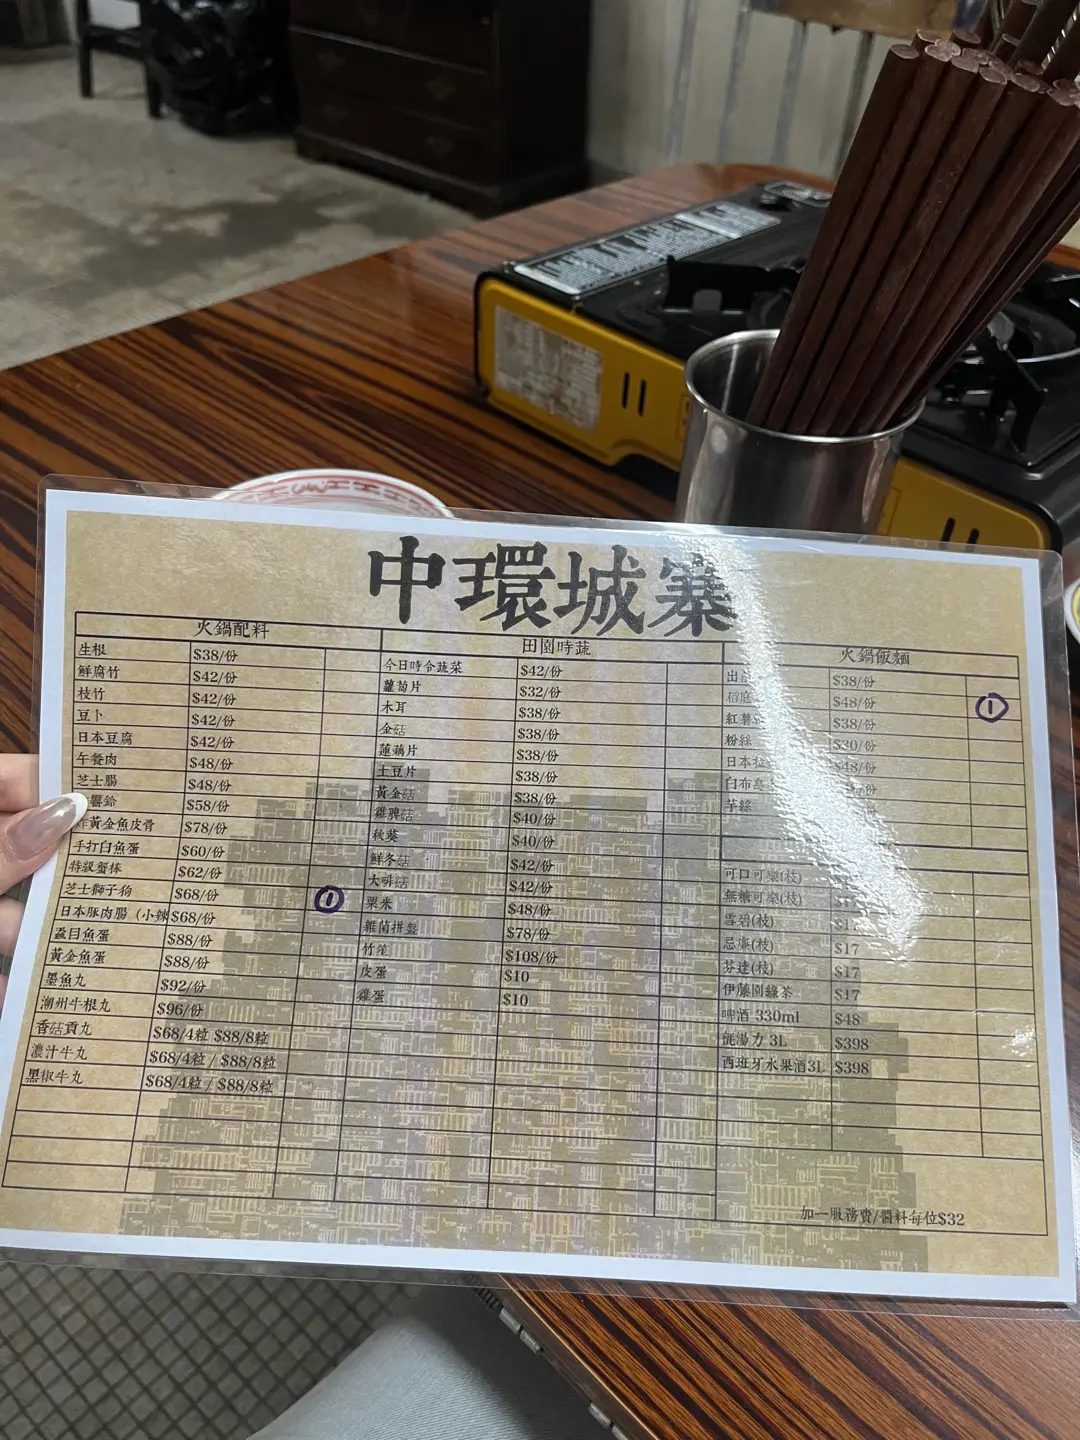 中環城寨
火鍋配料
生根 $38/份
鮮腐竹 $42/份
枝竹 $42/份
豆卜 $42/份
日本豆腐 $42/份
午餐肉 $48/份
芝士腸 $48/份
薯鈴 $58/份
黃金魚皮骨 $78/份
手打白魚蛋 $60/份
特級蟹棒 $62/份
芝士獅子狗 $68/份
日本豚肉腸(小辣 $68/份 ①
蝨目魚蛋 $88/份
黃金魚蛋 $88/份
墨魚丸 $92/份
潮州牛根丸 $96/份
香菇貢丸 $68/4粒 $88/8粒
濃汁牛丸 $68/4粒 / $88/8粒
黑椒牛丸 $68/4粒 / $88/8粒
田園時蔬
今日時令蔬菜 $42/份
蘿蔔片 $32/份
木耳 $38/份
金菇 $38/份
蓮藕片 $38/份
土豆片 $38/份
黃金菇 $38/份
雞髀菇 $40/份
秋葵 $40/份
鮮冬菇 $42/份
大啡菇 $42/份
粟米 $48/份
雜菌拼盤 $78/份
竹笙 $108/份
皮蛋 $10
雞蛋 $10
火鍋飯麵
出 $38/份
稻庭 $48/份 ①
紅薯 $38/份
粉絲 $30/份
日本拉 $48/份
白布島 /份
芋絲
可口可樂(枝)
無糖可樂(枝)
雪碧(枝) $17
忌廉(枝) $17
芬達(枝) $17
伊藤園綠茶 $17
啤酒 330ml $48
氈湯力 3L $398
西班牙水果酒3L $398
加一服務費/醬料每位$32